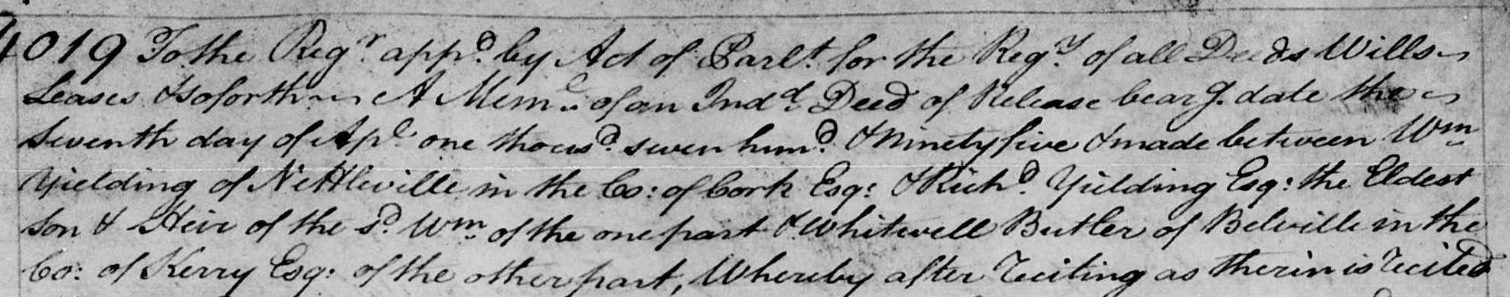 4019 To the Regr appd by Act of Parlt for the Regy of all Deeds Wills
Leases & soforth A Meml of an Indd Deed of Release bearg date the
Seventh day of Apl one thousd seven hund & Ninety five & made between Wm
Yielding of Nettleville in the Co: of Cork Esq: & Richd Yielding Esq: the Eldest
Son & Heir of the sd Wm of the one part & Whitwell Butler of Belville in the
Co: of Kerry Esq: of the other part, Whereby after reciting as therin is recited